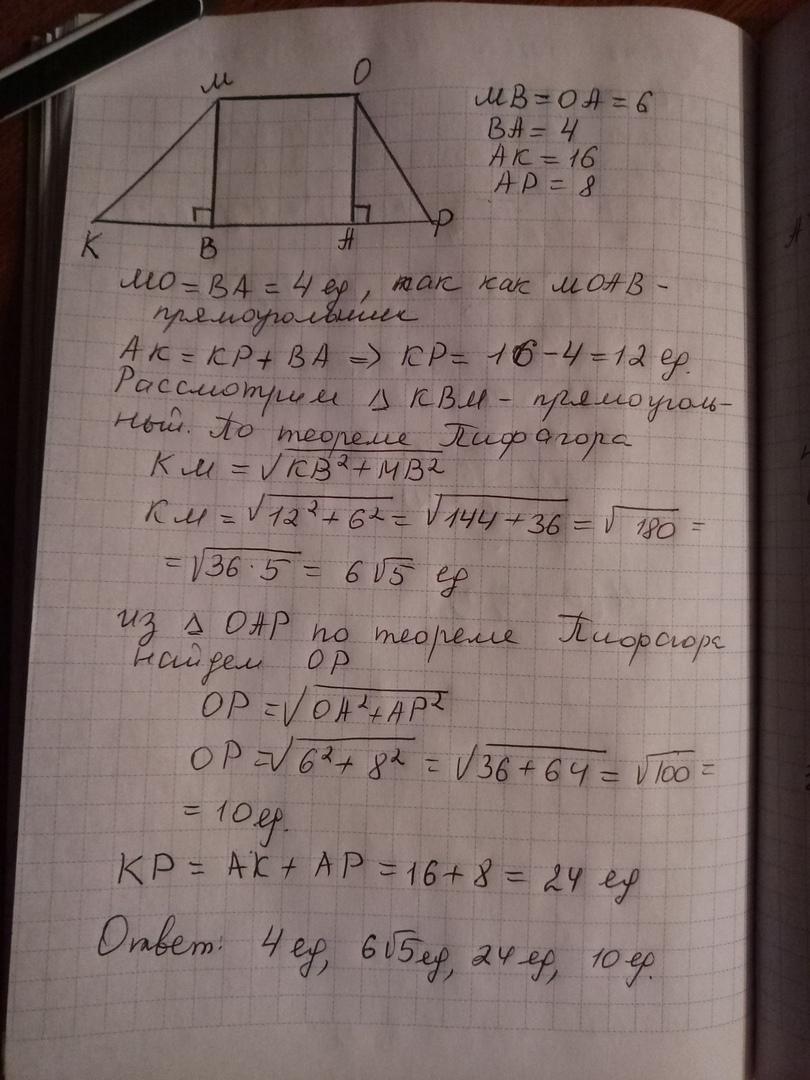 М О
MB = OA = 6
BA = 4
AK = 16
AP = 8
K B A P
MO = BA = 4 ед, так как MOAB -
прямоугольник
AK = KP + BA => KP = 16 - 4 = 12 ед.
Рассмотрим Δ KBM - прямоуголь-
ный. По теореме Пифагора
KM = √KB² + MB²
KM = √12² + 6² = √144 + 36 = √180 =
= √36 · 5 = 6√5 ед
из Δ OAP по теореме Пифагора
найдем OP
OP = √OA² + AP²
OP = √6² + 8² = √36 + 64 = √100 =
= 10 ед.
KP = AK + AP = 16 + 8 = 24 ед
Ответ: 4 ед, 6√5 ед, 24 ед, 10 ед.